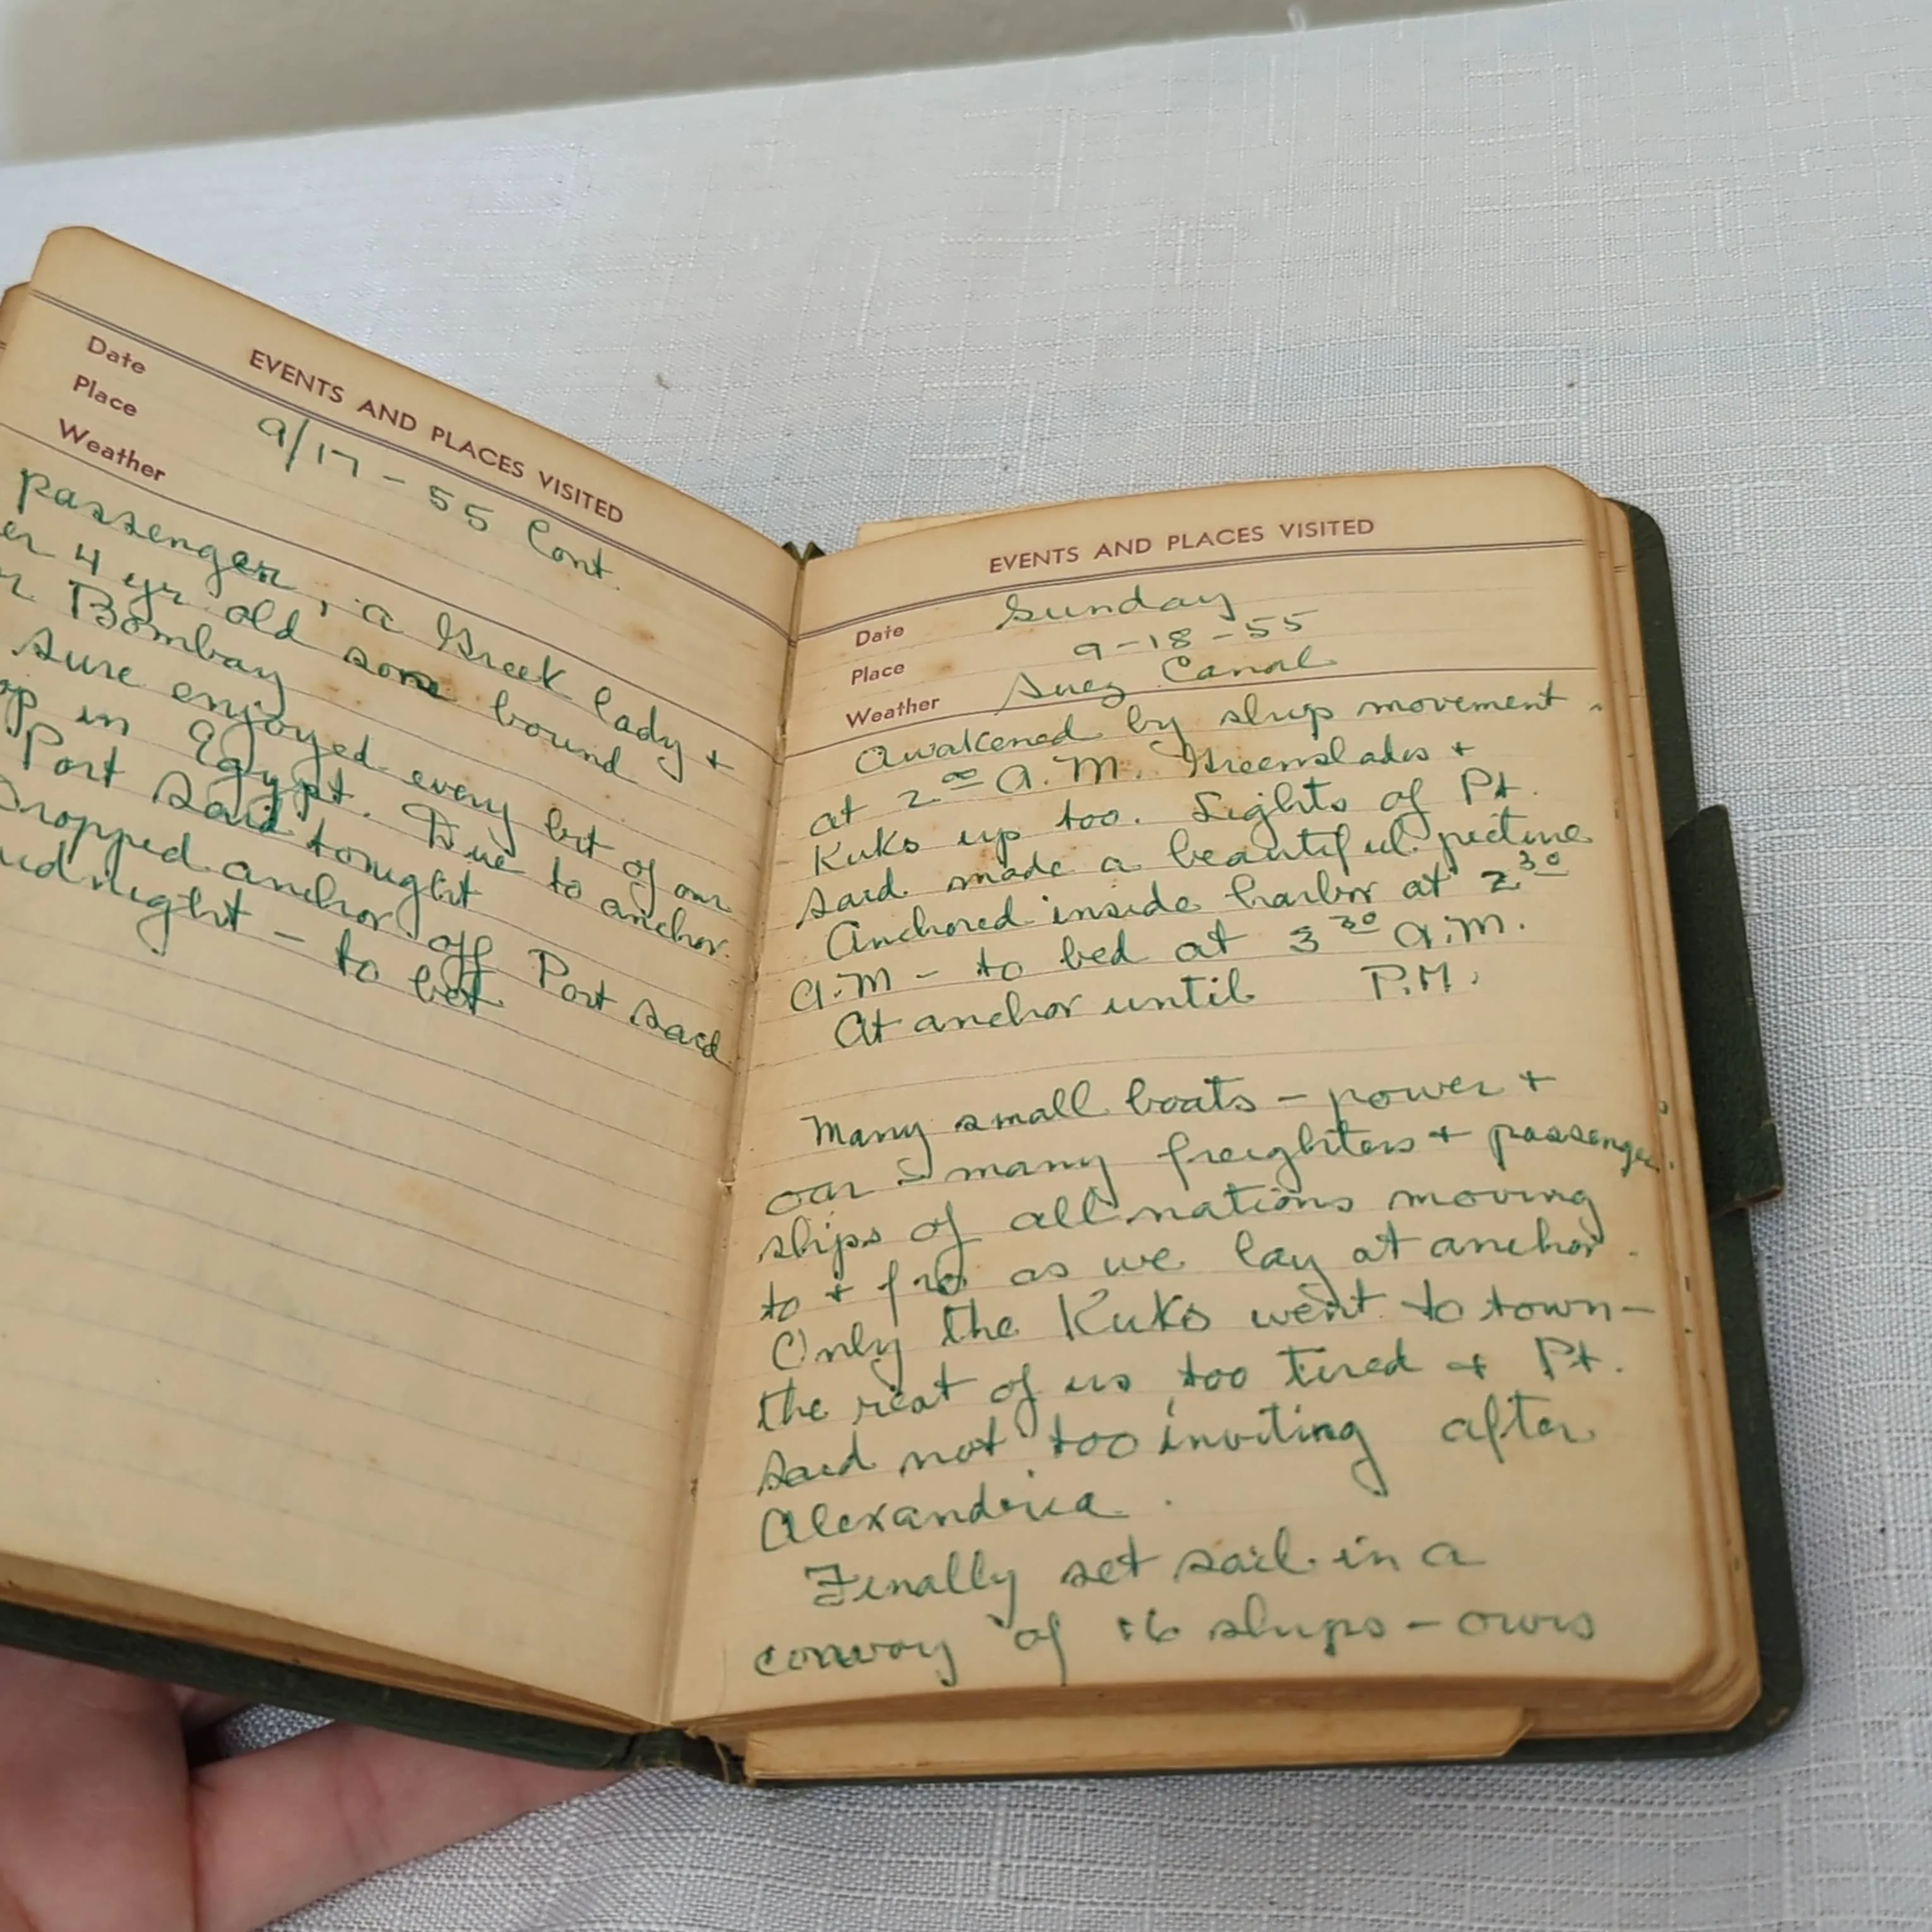 EVENTS AND PLACES VISITED
Date
Place 9/17-55 Cont.
Weather
passenger, a Greek lady +
er 4 yr old some bound
r Bombay
sure enjoyed every bit of our
op in Egypt. Due to anchor
Port Said tonight
Dropped anchor off Port Said
idnight - to bed
EVENTS AND PLACES VISITED
Date Sunday
Place 9-18-55
Weather Suez Canal
Awakened by ships movement
at 2 00 A.M. Greenslades +
Kuks up too. Lights of Pt.
Said made a beautiful picture
Anchored inside harbor at 2 30
A.M - to bed at 3 30 A.M.
At anchor until P.M.
Many small boats - power +
oar - many freighters + passenger
ships of all nations moving
to + fro as we lay at anchor.
Only the Kuks went to town -
the rest of us too tired + Pt.
Said not too inviting after
Alexandria.
Finally set sail in a
convoy of 16 ships - ours